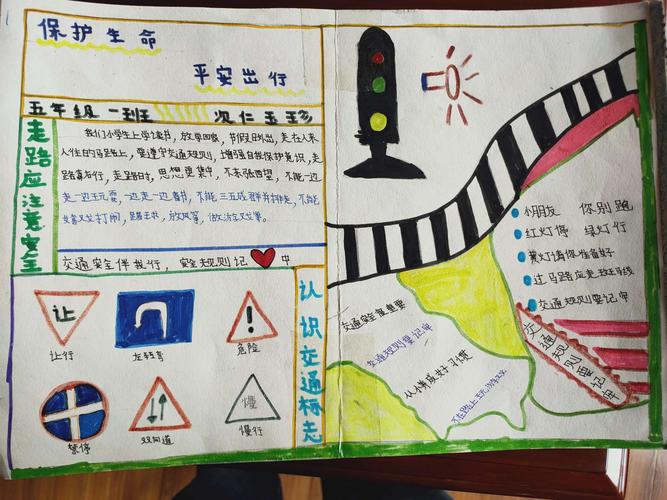 保护生命
平安出行
五年级 一班
次仁玉珍
走路应注意安全
我们小学生上学读书，放学回家，节假日外出，走在人来
人往的马路上，要遵守交通规则，增强自我保护意识，走
路靠右行，走路时，思想要集中，不东张西望，不能一边
走一边玩耍，一边走一边看书，不能三五成群并排走，不能
路上
放风筝，做游戏
交通安全伴我行，安全规则记 中
让
让行
左转弯
危险
禁停
双向道
慢
慢行
认识交通标志
小朋友 你别跑
红灯停 绿灯行
黄灯请你准备好
过马路应走斑马线
交通规则要记牢
交通规则要记牢
交通安全很重要
交通规则要记牢
从小养成好习惯
不在路上玩游戏